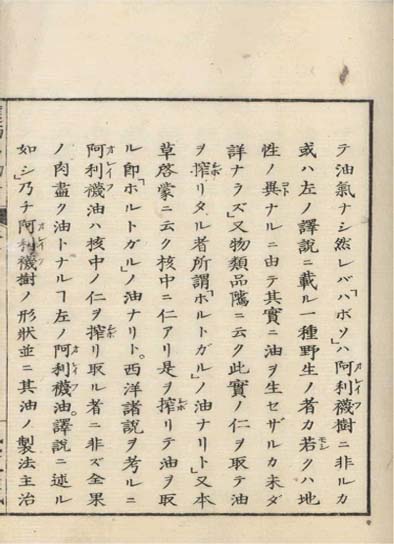 テ油氣ナシ然レバ「ハボソ」ハ阿利襪樹ニ非ルカ
或ハ左ノ譯說ニ載ル一種野生ノ者カ若クハ地
性ノ異ナルニ由テ其實ニ油ヲ生セザルカ未ダ
詳ナラズ」又物類品隲ニ云ク此實ノ仁ヲ取テ油
ヲ搾リタル者所謂「ホルトガル」ノ油ナリト」又本
草啓蒙ニ云ク核中ニ仁アリ是ヲ搾リテ油ヲ取
ル即「ホルトガル」ノ油ナリト。西洋諸說ヲ考ルニ
阿利襪油ハ核中ノ仁ヲ搾リ取ル者ニ非ズ全果
ノ肉盡ク油トナルヿ左ノ阿利襪油。譯說ニ述ル
如シ」乃チ阿利襪樹ノ形狀並ニ其油ノ製法主治